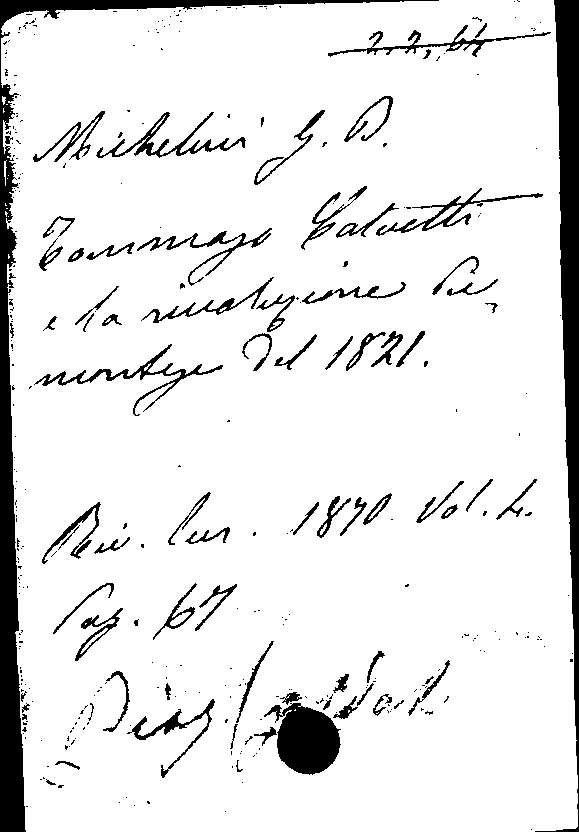 2.2.64
Michelini G. B.
Tommaso Calvetti
e la rivoluzione Pie
montese del 1821.
Riv. Eur. 1870 Vol. 4.
Pag. 67
Biog.